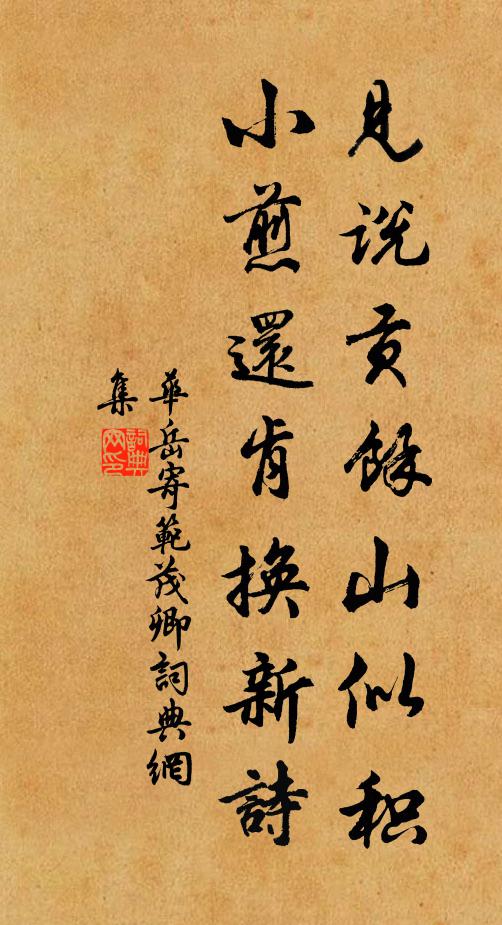 見説貢餘山似积
小煎還肯換新詩
華岳寄範茂卿詞典網
集
詞典網印